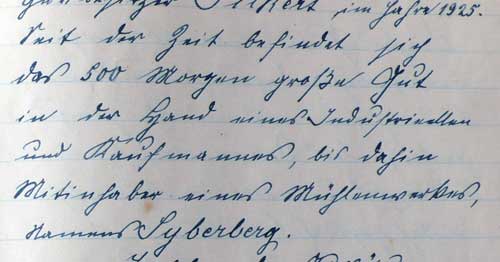 im Jahre 1925.
Seit der Zeit befindet sich
das 500 Morgen große Gut
in der Hand eines Industriellen
und Kaufmannes, bis dahin
Mitinhaber eines Mühlenwerkes,
namens Syberberg.